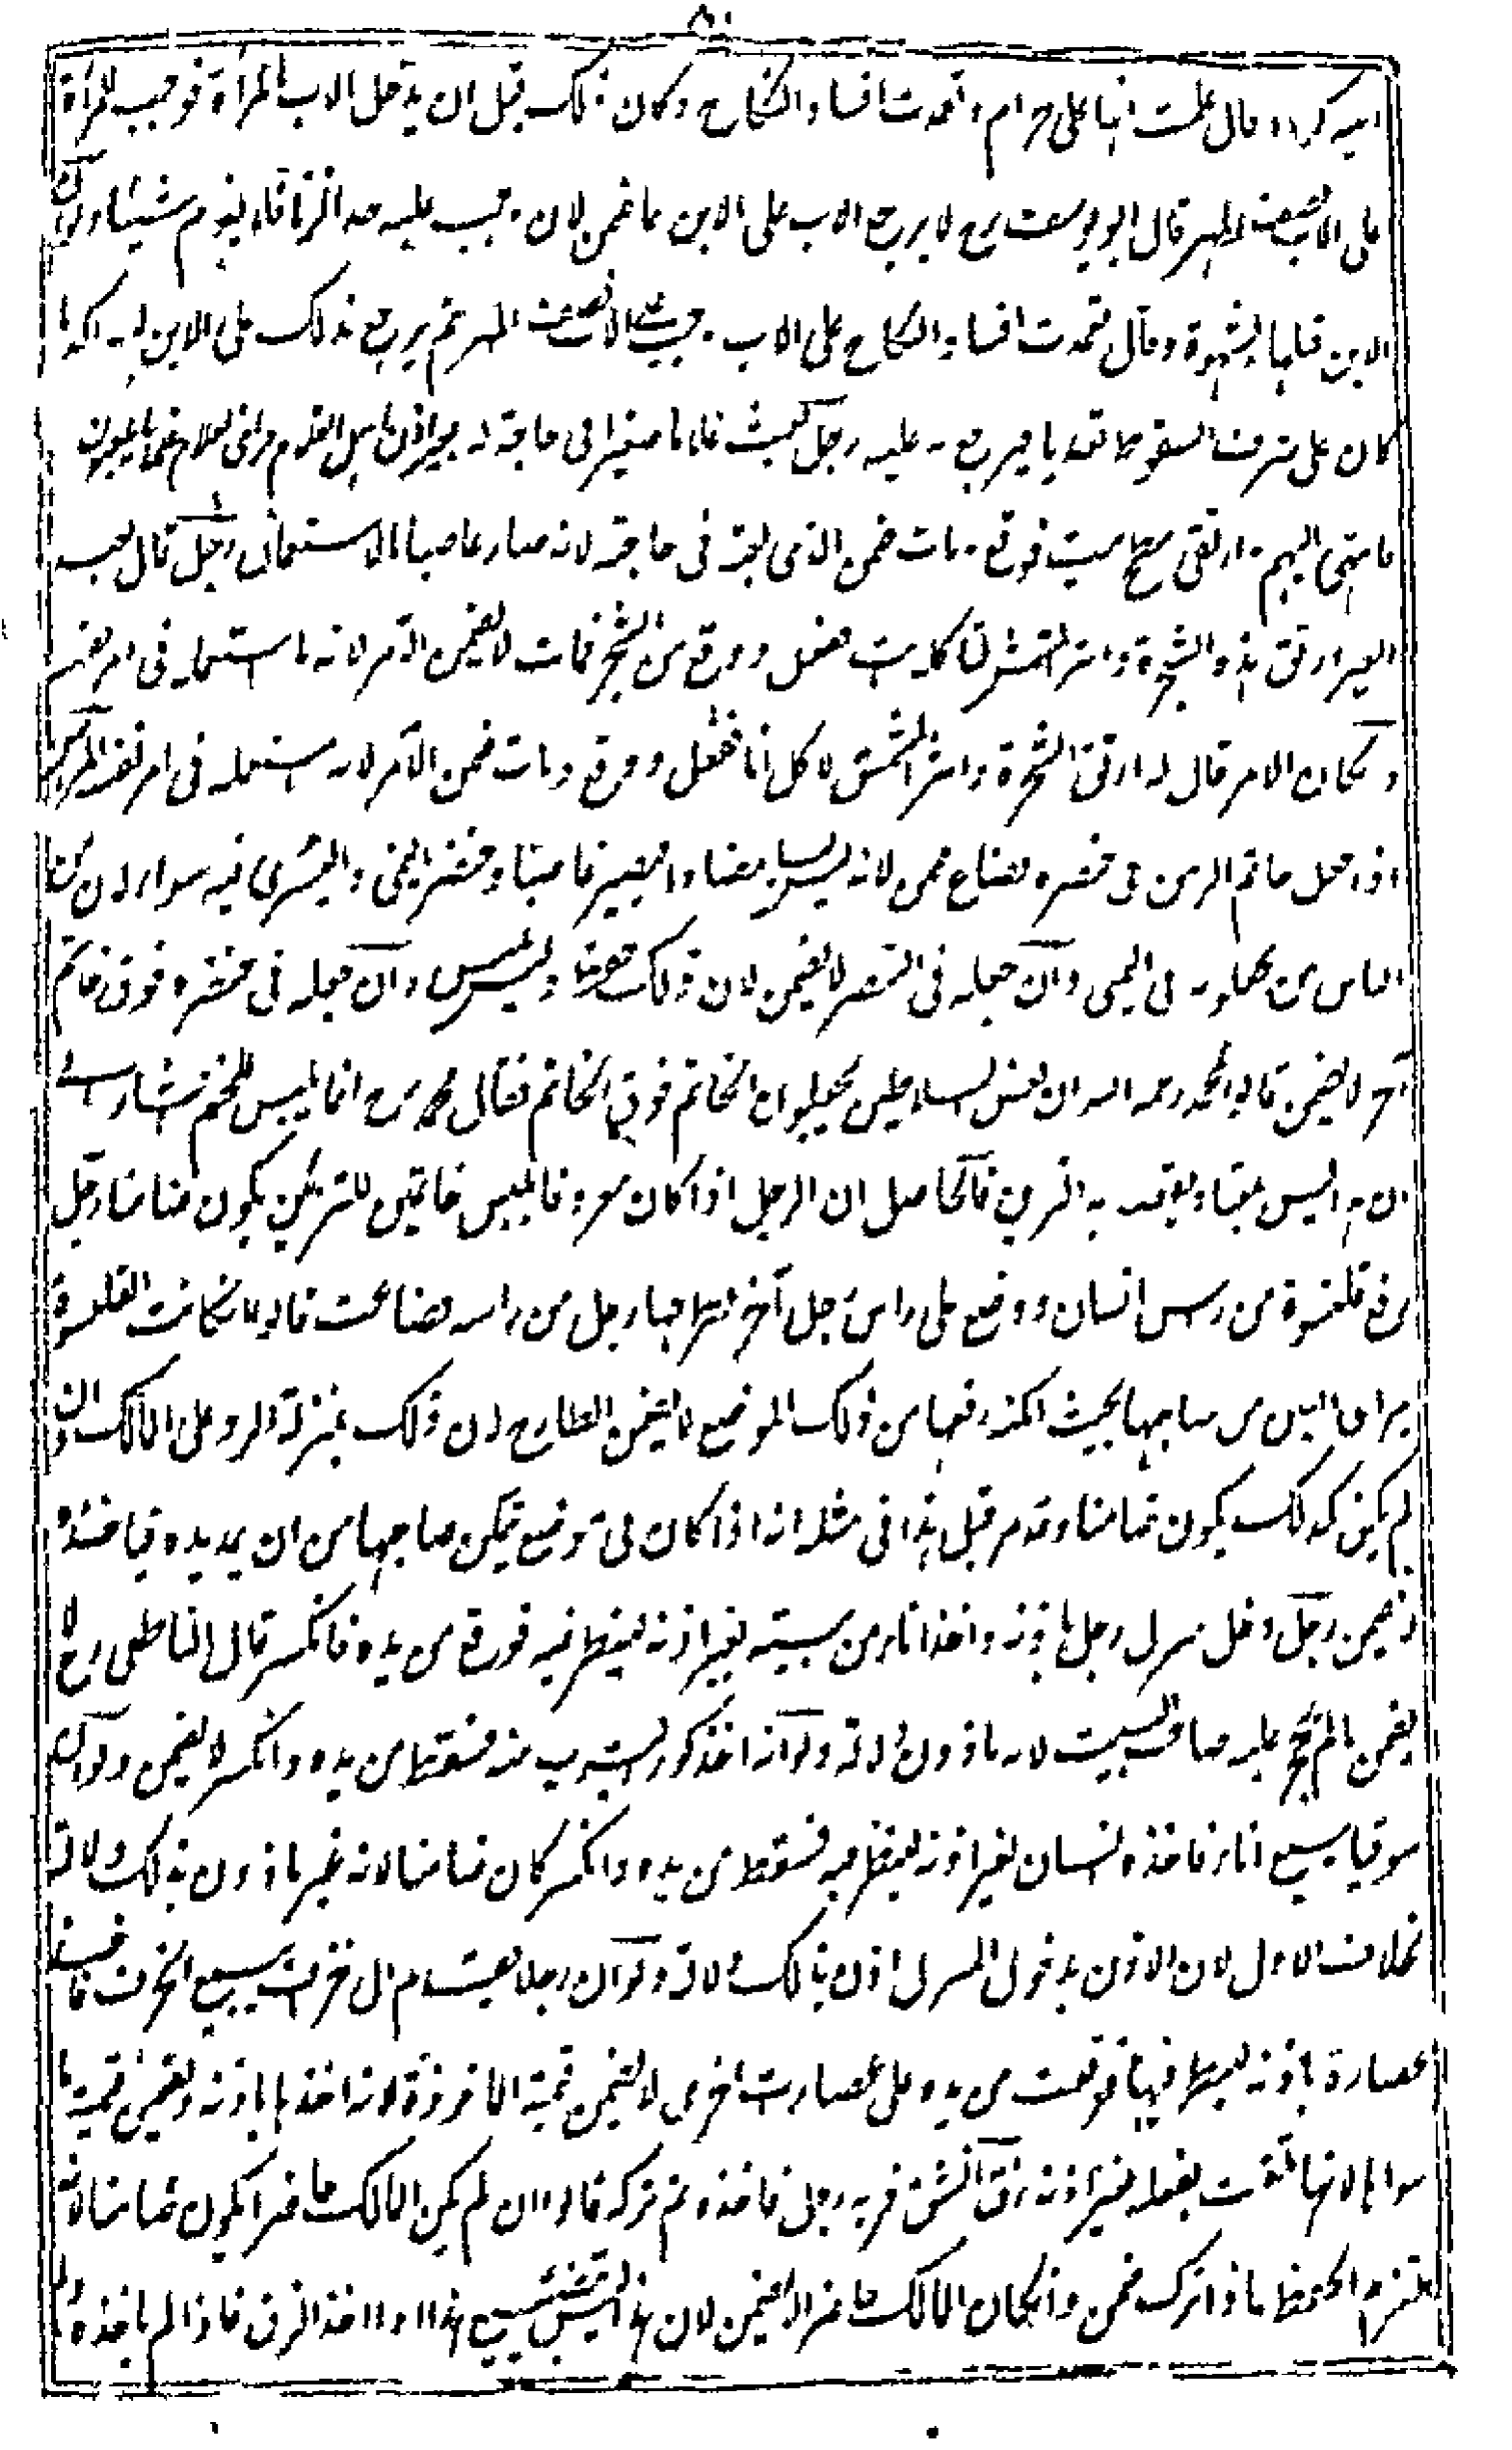 ٨٠
ابيه كرها وقال علمت انها علي حرام وتعمدت افساد النكاح وكان ذلك قبل ان يدخل الاب بالمرأة فوجب للمرأة
على الاب نصف المهر قال ابو يوسف رح لا يرجع الاب على الابن بما غرم لان وجب عليه حد الزنا فلا يغرم شيئا ولو ان
الابن قبلها بشهوة وقال تعمدت افساد النكاح على الاب وجب على الاب نصف المهر ثم يرجع بذلك على الابن لانه اكد ما
كان على شرف السقوط تعديا فيرجع به عليه رجل بعث غلاما صغيرا في حاجة له بغير اذن اهل الغلام فراى الغلام غلمانا يلعبون
فانتهى اليهم وارتقى سطح بيت فوقع ومات ضمن الذي بعثه في حاجته لانه صار غاصبا بالاستعمال رجل قال لصبي
الغير ارتق هذه الشجرة وانثر المشمش لتاكله انت ففعل ووقع من الشجر فمات لا يضمن الآمر لانه ما استعمله في امر نفسه
ولو كان الامر قال له ارتق الشجرة وانثر المشمش لآكل انا ففعل ووقع ومات ضمن الآمر لانه استعمله في امر نفسه المرتهن
اذا جعل خاتم الرهن في خنصره فضاع ضمن لانه لبس لبسا معتادا فيصير غاصبا وخنصر اليمنى واليسرى فيه سواء لان من
الناس من يجعلونه في اليمنى وان جعله في البنصر لا يضمن لان ذلك حفظ وليس بلبس وان جعله في خنصره فوق خاتم
آخر لا يضمن قالوا لمحمد رحمه الله ان بعض السلاطين يجعلون الخاتم فوق الخاتم فقال محمد رح انما يلبس للختم اشار الى
ان هذا ليس بمعتاد يقصد به التزين فالحاصل ان الرجل اذا كان معروفا بلبس خاتمين للتزين يكون ضامنا رجل
رفع قلنسوة من راس انسان ووضع على راس رجل آخر فطرحها رجل من راسه فضاعت قالوا ان كانت القلنسوة
بمراى العين من صاحبها بحيث امكنه رفعها من ذلك الموضع لا يضمن الطارح لان ذلك بمنزلة الرد على المالك وان
لم يكن كذلك يكون ضامنا وقد مر قبل هذا في مثله انه اذا كان في موضع يمكن صاحبها من ان يمد يده فياخذه
لا يضمن رجل دخل منزل رجل باذنه واخذ اناء من بيته بغير اذنه لينظر فيه فوقع من يده فانكسر قال الناطفي رح لا
يضمن ما لم يحجر عليه صاحب البيت لانه ماذون دلالة ولو انه اخذ كوزا ليشرب منه فسقط من يده وانكسر لا يضمن ولو ان
سوقيا يبيع اناء فاخذه انسان بغير اذنه لينظر فيه فسقط من يده وانكسر كان ضامنا لانه غير ماذون بذلك دلالة
بخلاف الاول لان الاذن بدخول المنزل اذن بذلك دلالة ولو ان رجلا تقدم الى خزاف يبيع الخزف فاخذ
غضارة باذنه لينظر فيها فوقعت من يده على غضارات اخرى لا يضمن قيمة الماخوذة لانه اخذها باذنه ويضمن قيمة ما
سواها لانها تلفت بفعله بغير اذنه زق انشق فمر به رجل فاخذه ثم تركه قالوا ان لم يكن المالك حاضرا يكون ضامنا لانه
يلتزم الحفظ فاذا ترك ضمن وان كان المالك حاضرا لا يضمن لان هذا ليس بتضييع هذا اذا اخذ الزق فاذا لم ياخذه ولم